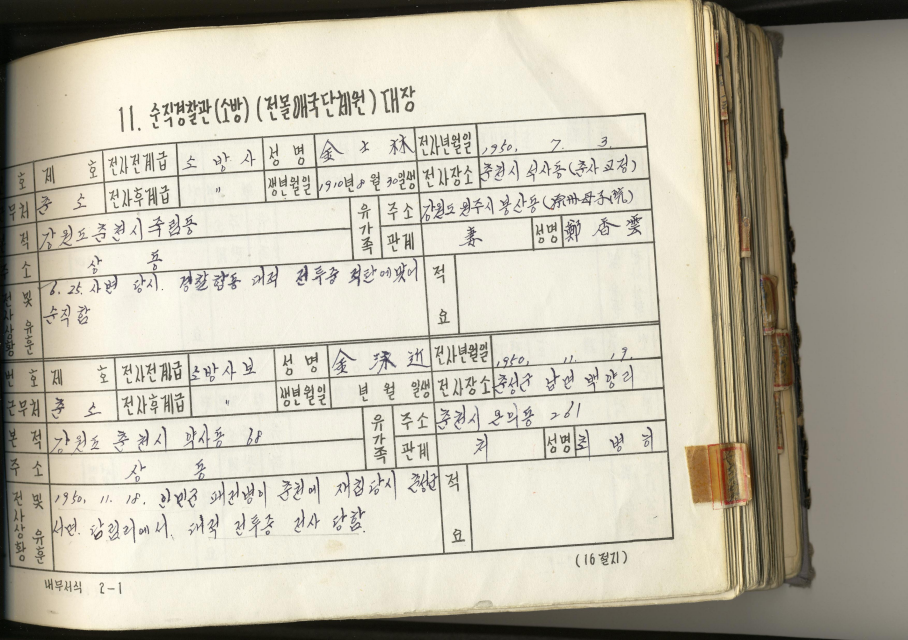 11. 순직경찰관(소방)(전몰애국단체원) 대장
호 제 호 전사전계급 소방사 성명 金 士 林 전사년월일 1950. 7. 3.
무처 춘소 전사후계급 〃 생년월일 1910년 8월 30일생 전사장소 춘천시 석사동
적 강원도 춘천시 죽림동 유가족 주소 강원도 원주시 봉산동
소 상동 관계 妻 성명 鄭香雲
및 유훈 6.25. 사변 당시. 경찰합동 대적 전투중 적탄에 맞어
순직함
적요
번호 제 호 전사전계급 소방사보 성명 金 近 전사년월일 1950. 11. 19.
근무처 춘소 전사후계급 〃 생년월일 년 월 일생 전사장소 춘성군 남면 백양리
본적 강원도 춘천시 약사동 68 유가족 주소 춘천시 온의동 261
주소 상동 관계 처 성명 최병히
전사상황 및 유훈 1950. 11. 18. 인민군 패전병이 춘천에 재침당시 춘성군
서면. 에서. 대적 전투중 전사 당함.
적요
내무서식 2-1
(16절지)